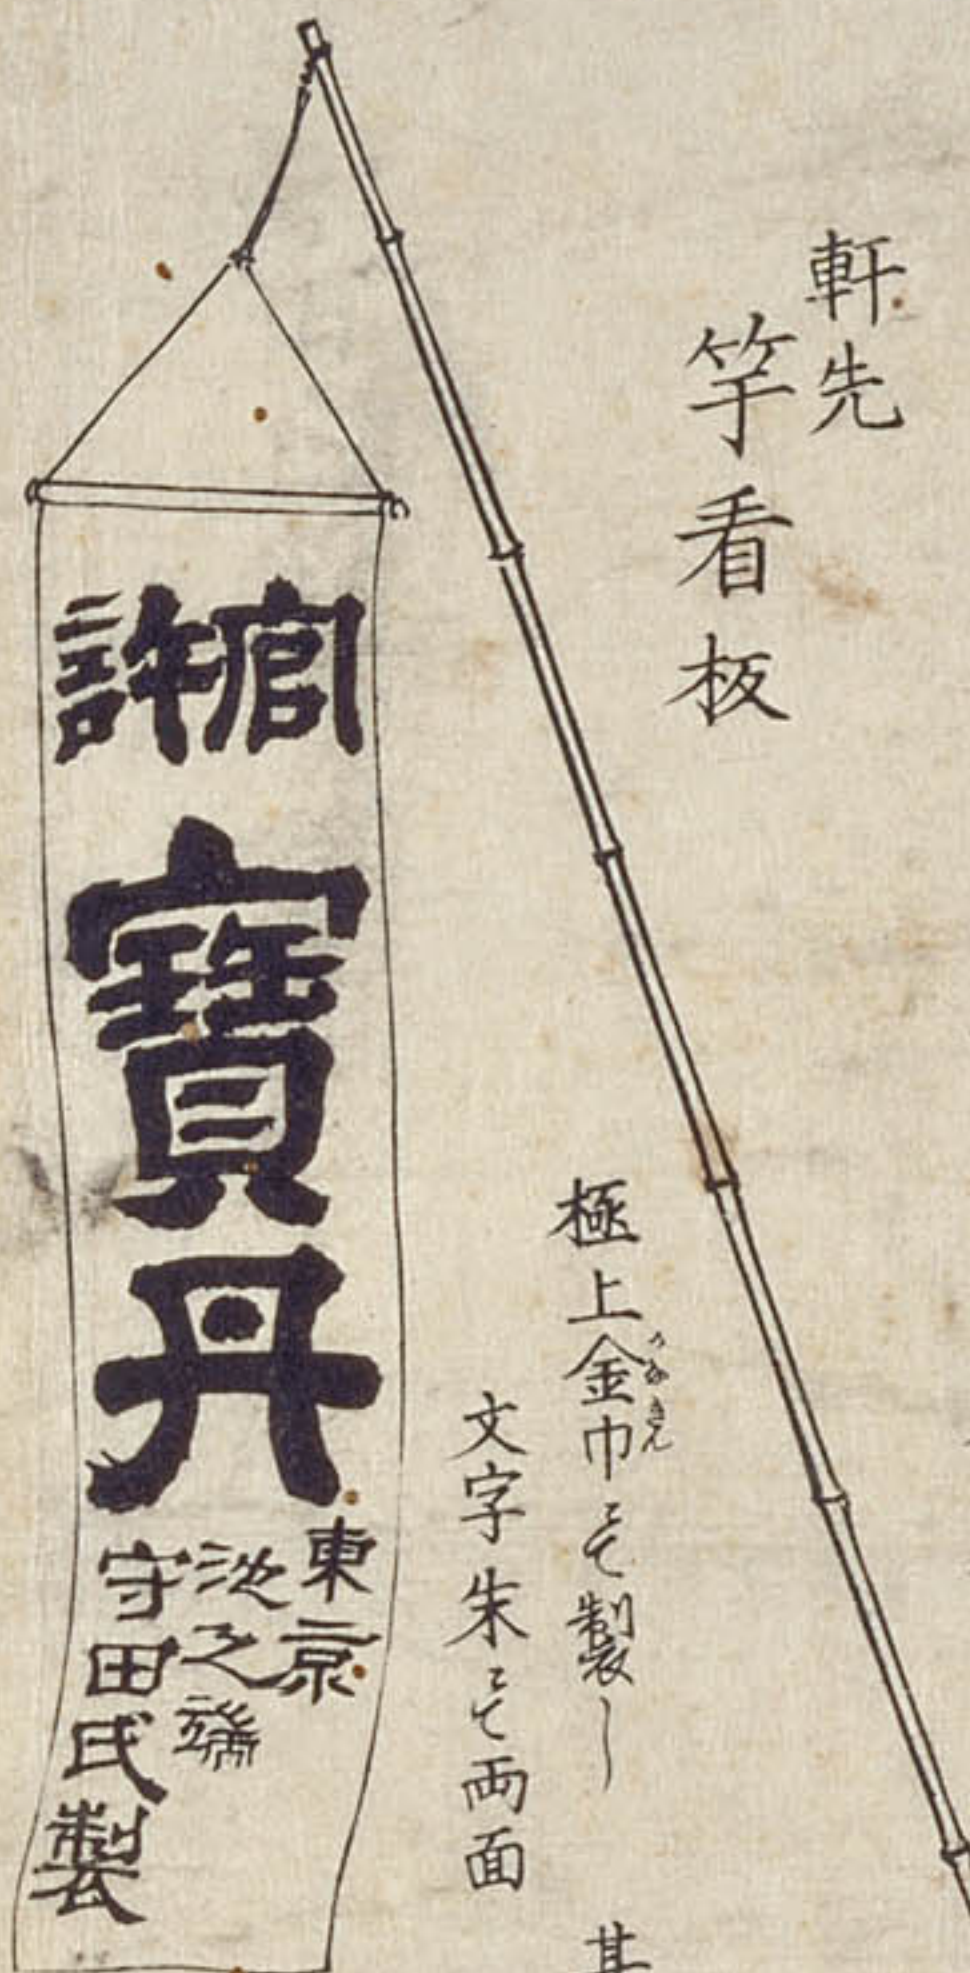 軒先
竿看板
極上金巾にて製し
かなきん
文字朱にて両面
官許
寳丹
東京
池之端
守田氏製